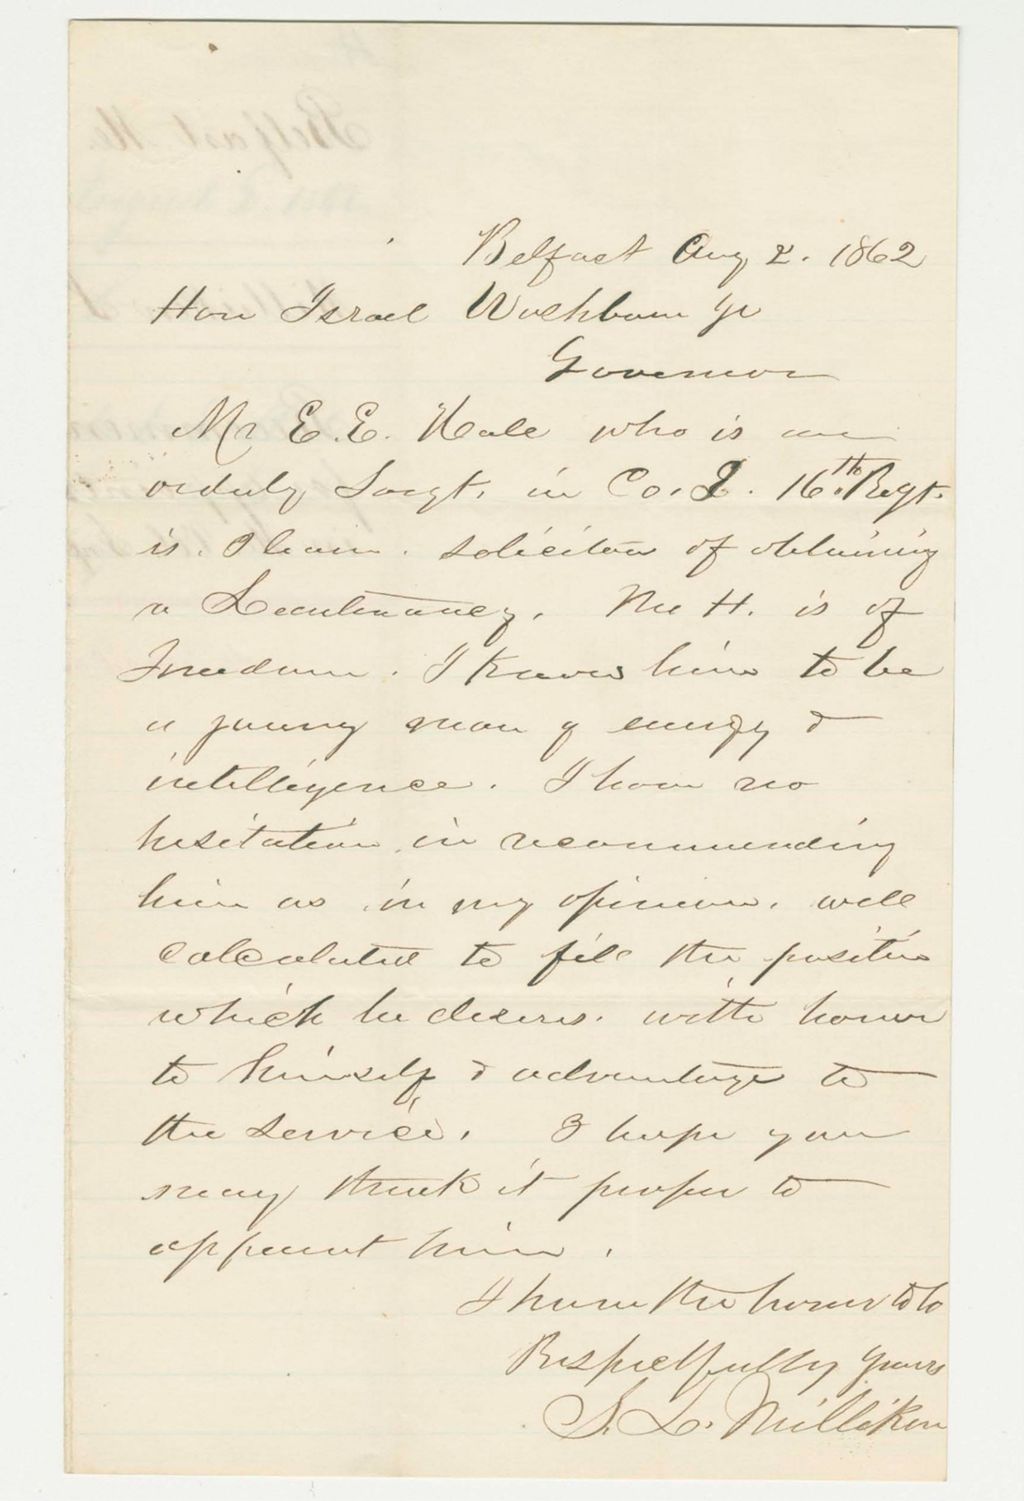 Belfast Aug 2. 1862
Hon Israel Washburn Jr
Governor
Mr E. E. Hale who is an
orderly Sergt. in Co. I. 16th Regt.
is. I learn. solicitous of obtaining
a Lieutenancy. Mr H. is of
Freedom. I know him to be
a young man of energy &
intelligence. I have no
hesitation in recommending
him as in my opinion. well
calculated to fill the position
which he desires. with honor
to himself & advantage to
the service. I hope you
may think it proper to
appoint him.
I have the honor to be
Respectfully Yours
S. L. Milliken